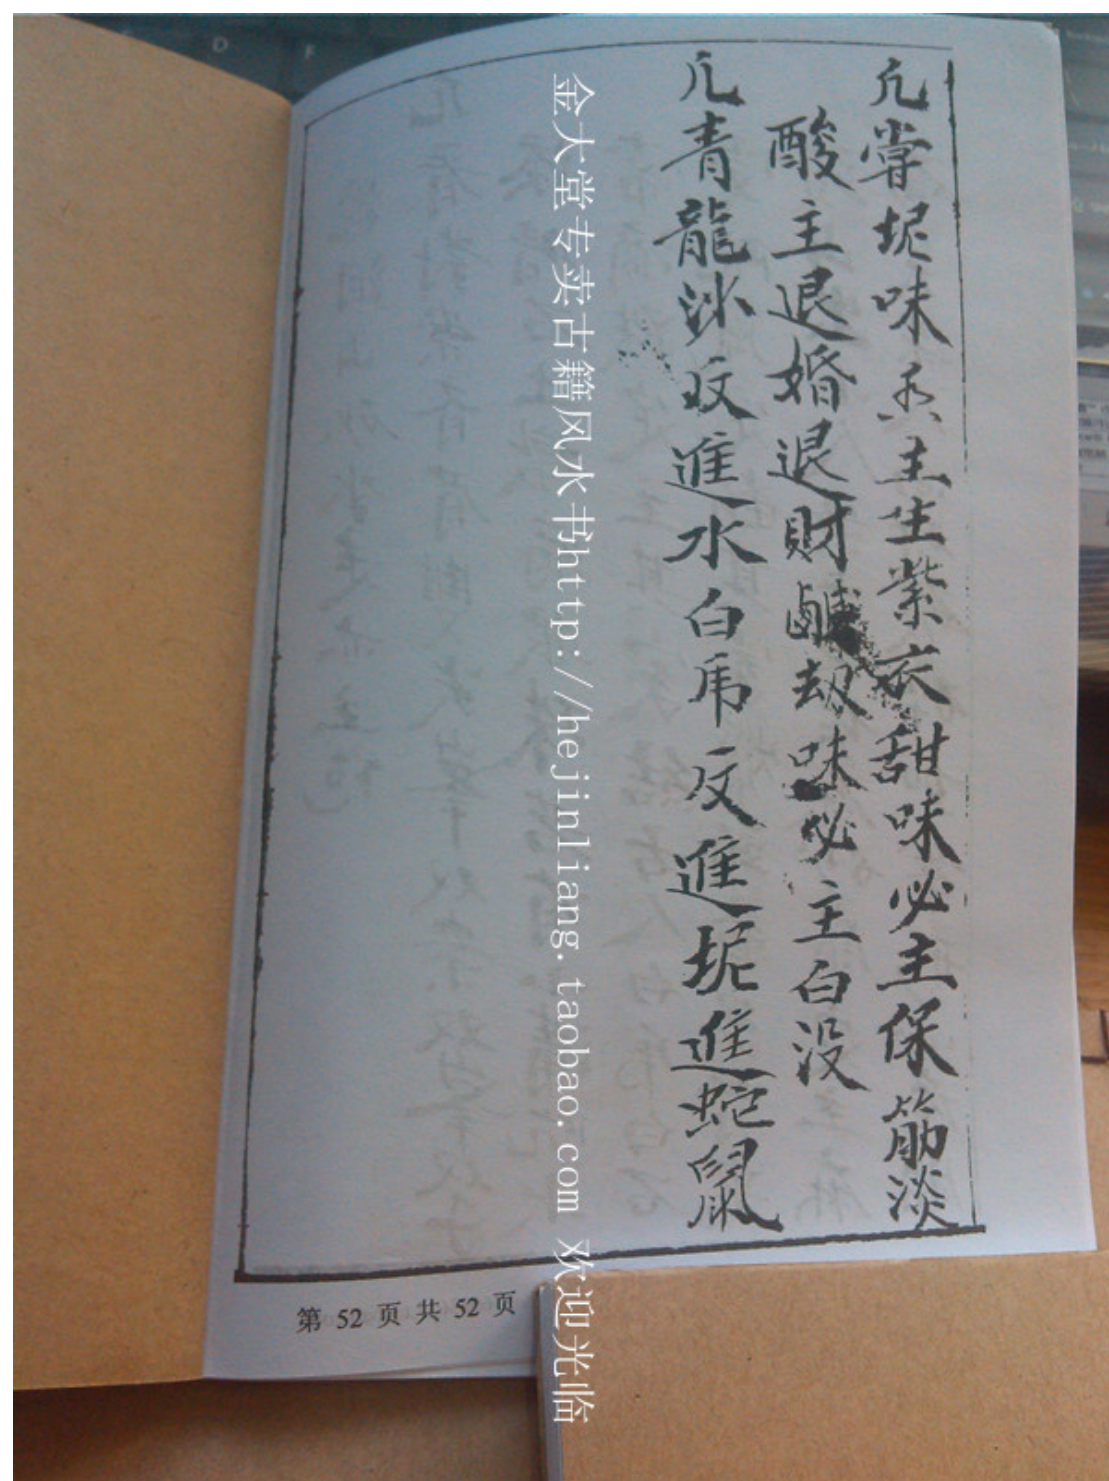 凢嘗坭味香主生紫衣甜味必主保筋淡
酸主退婚退財鹹刼味必主白没
凢青龍沙反進水白虎反進坭進蛇鼠
金大堂专卖古籍风水书http://hejinliang.taobao.com 欢迎光临
第 52 页 共 52 页